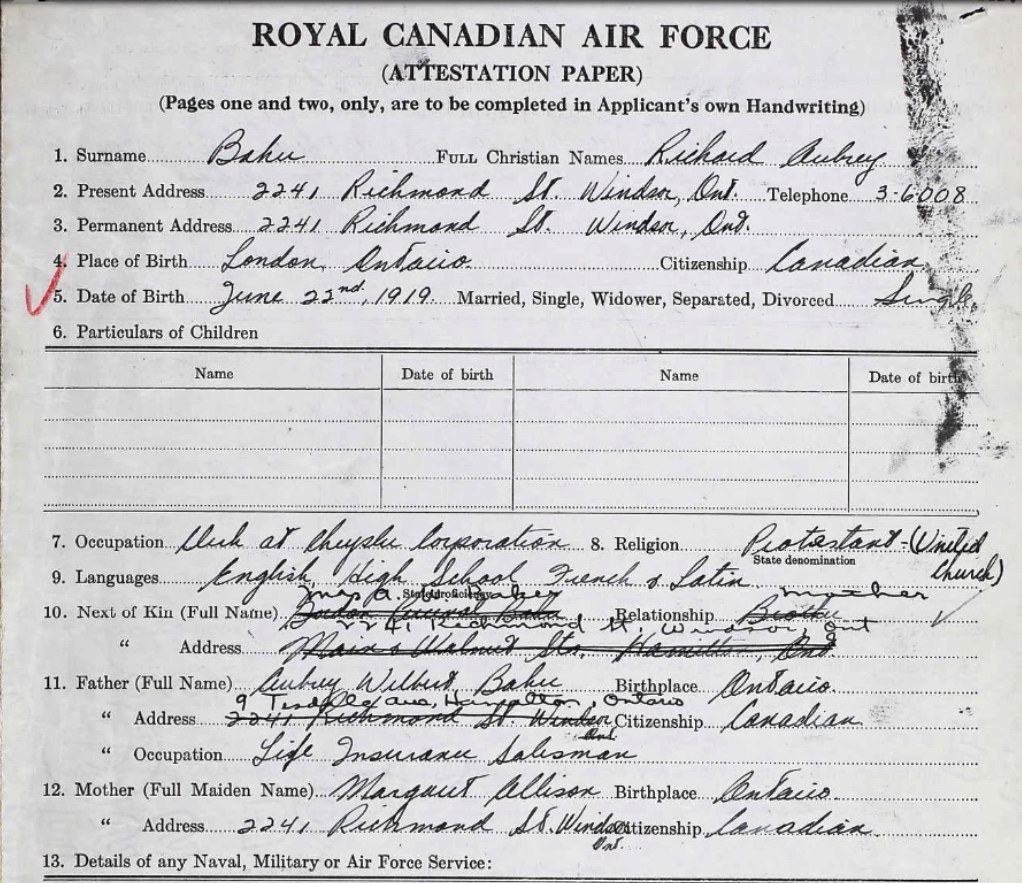 ROYAL CANADIAN AIR FORCE
(ATTESTATION PAPER)
(Pages one and two, only, are to be completed in Applicant's own Handwriting)
1. Surname Baker FULL Christian Names Richard Aubrey
2. Present Address 2241 Richmond St. Windsor, Ont. Telephone 3-6008
3. Permanent Address 2241 Richmond St. Windsor, Ont.
4. Place of Birth London, Ontario. Citizenship Canadian
5. Date of Birth June 22nd, 1919. Married, Single, Widower, Separated, Divorced Single
6. Particulars of Children
Name Date of birth Name Date of birth
7. Occupation Clerk at Chrysler Corporation 8. Religion Protestant - (United Church)
State denomination
9. Languages English, High School French & Latin
State proficiency
Mrs A. W. Baker mother
10. Next of Kin (Full Name) Gordon Baker Relationship Brother
2241 Richmond St, Windsor, Ont
" Address Main & Walnut Sts. Hamilton, Ont
11. Father (Full Name) Aubrey Wilbert Baker Birthplace Ontario.
9 Ave, Hamilton, Ontario
" Address 2241 Richmond St. Windsor Ont. Citizenship Canadian
" Occupation Life Insurance Salesman
12. Mother (Full Maiden Name) Margaret Allison Birthplace Ontario
" Address 2241 Richmond St. Windsor Ont. Citizenship Canadian
13. Details of any Naval, Military or Air Force Service: